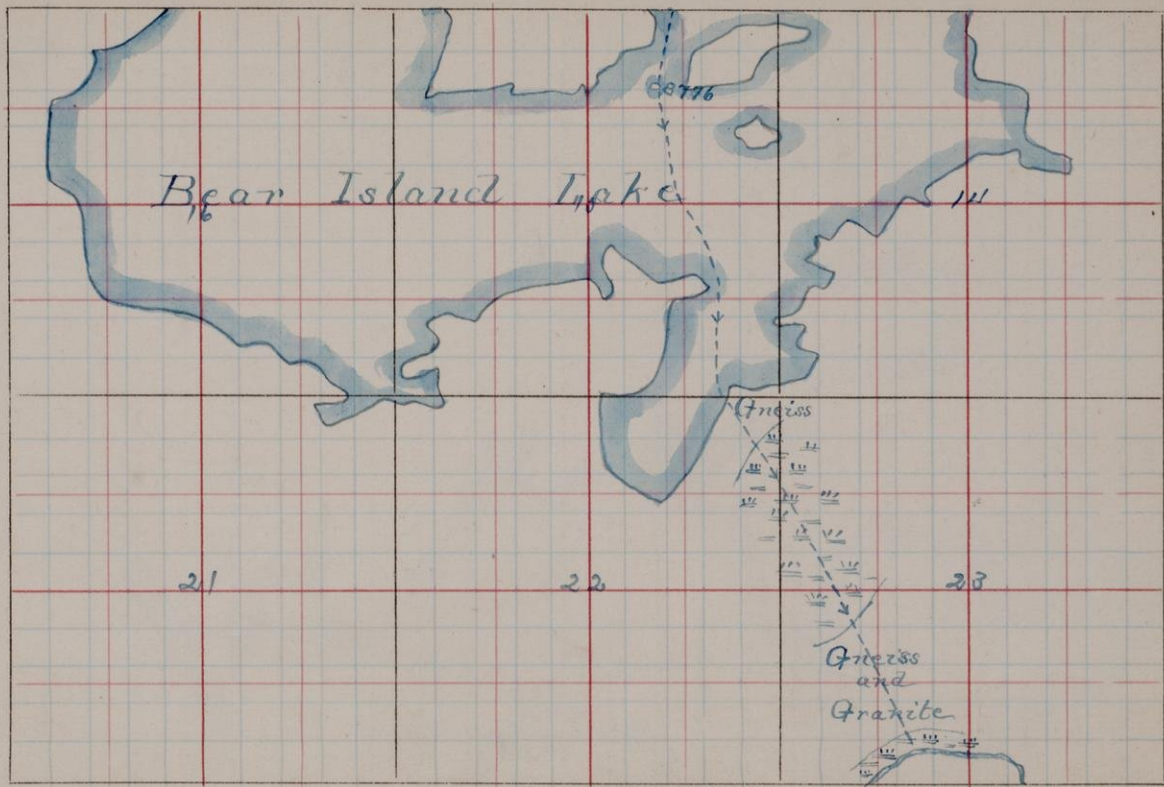 8776
Bear Island Lake
16
14
Gneiss
21
22
23
Gneiss
and
Granite